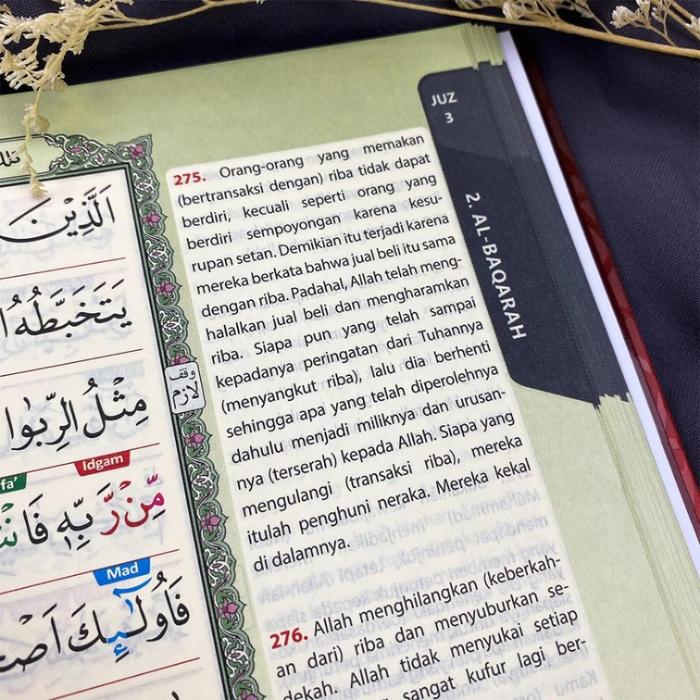 JUZ
3
2. AL-BAQARAH
275. Orang-orang yang memakan
(bertransaksi dengan) riba tidak dapat
berdiri, kecuali seperti orang yang
berdiri sempoyongan karena kesu-
rupan setan. Demikian itu terjadi karena
mereka berkata bahwa jual beli itu sama
dengan riba. Padahal, Allah telah meng-
halalkan jual beli dan mengharamkan
riba. Siapa pun yang telah sampai
kepadanya peringatan dari Tuhannya
(menyangkut riba), lalu dia berhenti
sehingga apa yang telah diperolehnya
dahulu menjadi miliknya dan urusan-
nya (terserah) kepada Allah. Siapa yang
mengulangi (transaksi riba), mereka
itulah penghuni neraka. Mereka kekal
di dalamnya.
276. Allah menghilangkan (keberkah-
an dari) riba dan menyuburkan se-
dekah. Allah tidak menyukai setiap
sangat kufur lagi ber-
اَلَّذِيْنَ
يَتَخَبَّطُهُ
مِثْلُ الرِّبٰوا
وقف لازم
Idgam
مِّنْ رَّبِّهٖ
Mad
فَاُولٰۤىِٕكَ